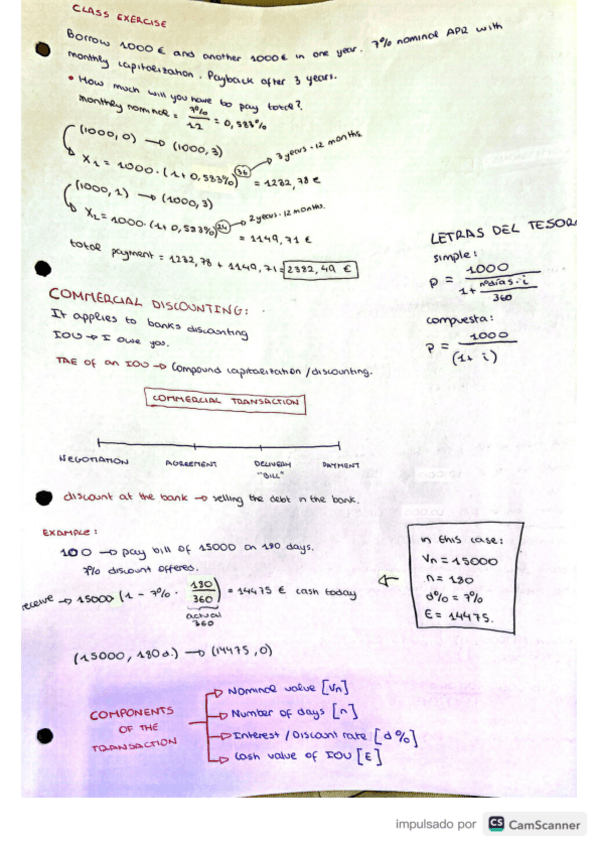 CLASS EXERCISE
Borrow 1000 € and another 1000 € in one year. 7% nominal APR with
monthly capitalization. Payback after 3 years.
• How much will you have to pay total?
monthly nominal = 7% / 12 = 0,583%
(1000, 0) → (1000, 3)
X1 = 1000 · (1 + 0,583%)^36 = 1232,78 € → 3 years · 12 months
(1000, 1) → (1000, 3)
X2 = 1000 · (1 + 0,583%)^24 = 1149,71 € → 2 years · 12 months.
total payment = 1232,78 + 1149,71 = 2382,49 €
LETRAS DEL TESOR
simple:
P = 1000 / (1 + nºdías · i / 360)
compuesta:
P = 1000 / (1 + i)
COMMERCIAL DISCOUNTING:
It applies to banks discounting
IOU → I owe you.
TAE of an IOU → Compound capitalization / discounting.
COMMERCIAL TRANSACTION
NEGOTIATION AGREEMENT DELIVERY "BILL" PAYMENT
discount at the bank → selling the debt in the bank.
EXAMPLE:
100 → pay bill of 15000 on 180 days.
7% discount offered.
receive → 15000 (1 - 7% · 180 / 360) = 14475 € cash today
actual
360
(15000, 180d.) → (14475, 0)
in this case:
Vn = 15000
n = 180
d% = 7%
E = 14475.
COMPONENTS
OF THE
TRANSACTION
Nominal value [Vn]
Number of days [n]
Interest / Discount rate [d%]
Cash value of IOU [E]
impulsado por CS CamScanner